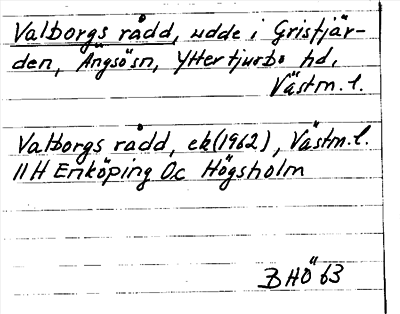 Valborgs rådd, udde i Grisfjär-
den, Ängsösn, Yttertjurbo hd,
Västm. l.
Valborgs rådd, ek(1962), Västm. l.
11H Enköping Oc Högsholm
BHÖ 63